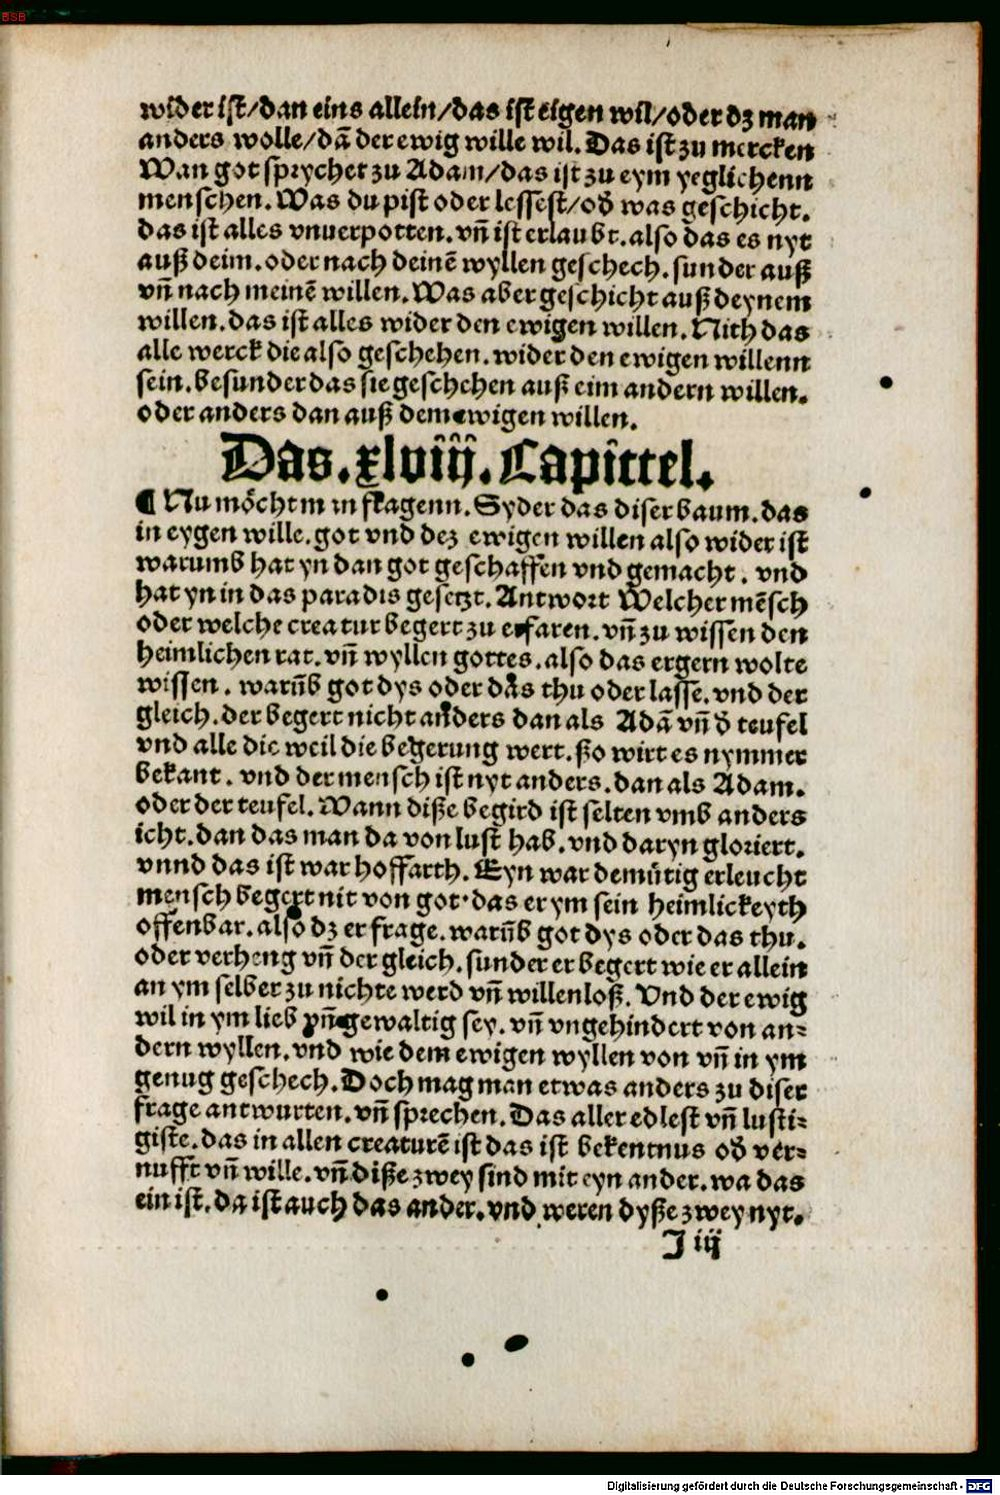 BSB
wider ist/dan eins allein/das ist eigen wil/oder dz man
anders wolle/dā der ewig wille wil. Das ist zu mercken
Wan got sprychet zu Adam/das ist zu eym yeglichenn
menschen. Was du pist oder lessest/od̕ was geschicht.
das ist alles vnuerpotten. vn̄ ist erlaubt. also das es nyt
auß deim. oder nach deinē wyllen geschech. sunder auß
vn̄ nach meinē willen. Was aber geschicht auß deynem
willen. das ist alles wider den ewigen willen. Nith das
alle werck die also geschehen. wider den ewigen willenn
sein. besunder das sie geschehen auß eim andern willen.
oder anders dan auß dem ewigen willen.
Das. xlviij. Capittel.
¶ Nu möcht m in fragenn. Syder das diser baum. das
in eygen wille. got vnd dez ewigen willen also wider ist
warumb hat yn dan got geschaffen vnd gemacht. vnd
hat yn in das paradis gesetzt. Antwort Welcher mēsch
oder welche creatur begert zu erfaren. vn̄ zu wissen den
heimlichen rat. vn̄ wyllen gottes. also das er gern wolte
wissen. warūb got dys oder das thu oder lasse. vnd der
gleich. der begert nicht anders dan als Adā vn̄ d̕ teufel
vnd alle die weil die begerung wert. ßo wirt es nymmer
bekant. vnd der mensch ist nyt anders. dan als Adam.
oder der teufel. Wann diße begird ist selten vmb anders
icht. dan das man da von lust hab. vnd daryn gloriert.
vnnd das ist war hoffarth. Eyn war demütig erleucht
mensch begert nit von got. das er ym sein heimlickeyth
offenbar. also dz er frage. warūb got dys oder das thu.
oder verheng vn̄ der gleich. sunder er begert wie er allein
an ym selber zu nichte werd vn̄ willenloß. Vnd der ewig
wil in ym lieb vn̄ gewaltig sey. vn̄ vngehindert von an=
dern wyllen. vnd wie dem ewigen wyllen von vn̄ in ym
genug geschech. Doch mag man etwas anders zu diser
frage antwurten. vn̄ sprechen. Das aller edlest vn̄ lusti=
giste. das in allen creaturē ist das ist bekentnus od̕ ver=
nufft vn̄ wille. vn̄ diße zwey sind mit eyn ander. wa das
ein ist. da ist auch das ander. vnd weren dyße zwey nyt.
J iij
Digitalisierung gefördert durch die Deutsche Forschungsgemeinschaft - DFG